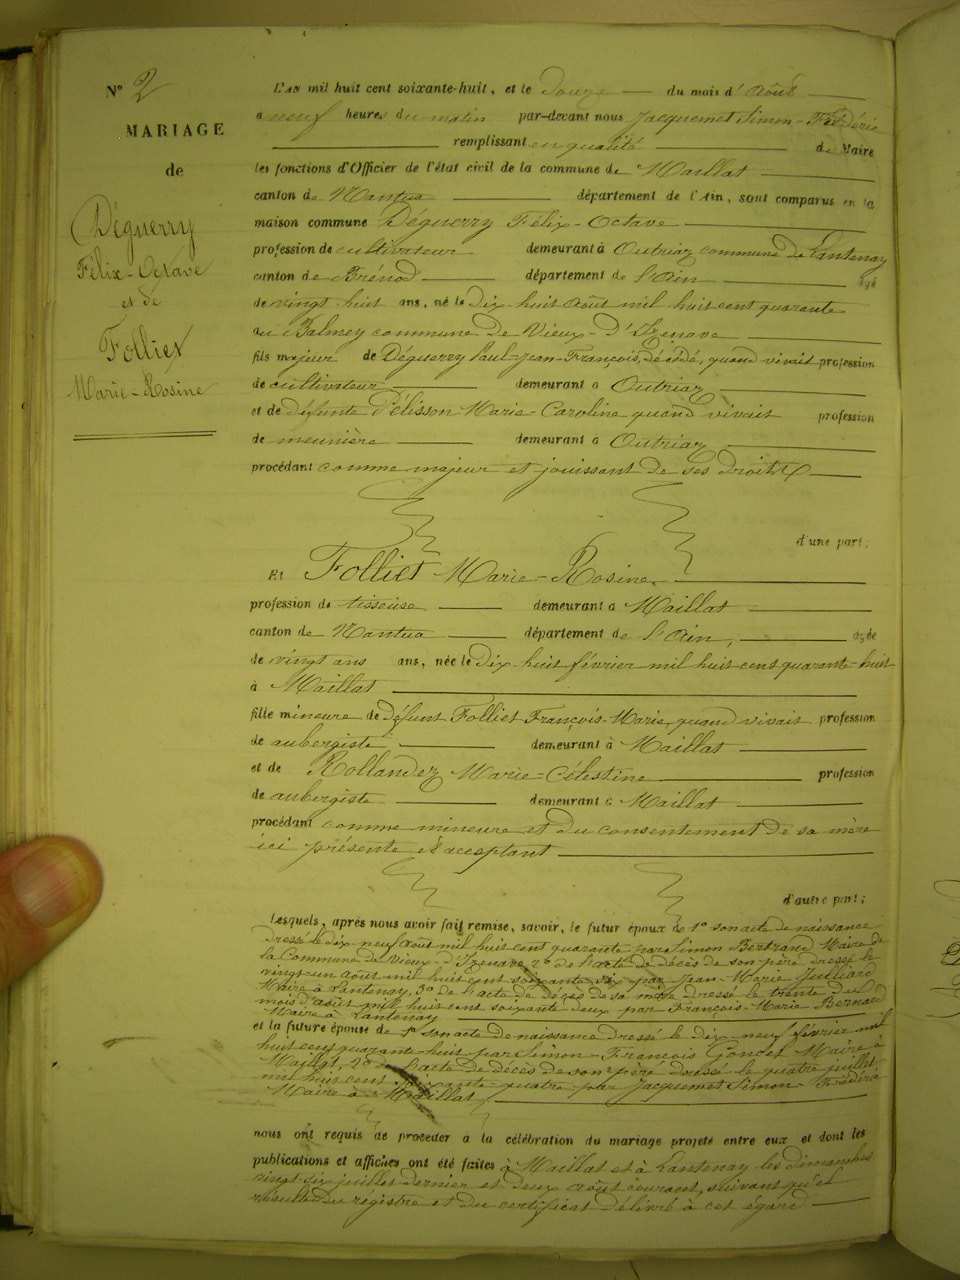 N° 2
MARIAGE
de
Déguerry
Félix-Octave
et de
Folliet
Marie-Rosine
L'an mil huit cent soixante-huit, et le Douze du mois d'Août
a neuf heures du matin par-devant nous Jacquemet Simon-Frédéric
remplissant en qualité de Maire
les fonctions d'Officier de l'état civil de la commune de Maillat
canton de Nantua département de l'Ain, sont comparus en la
maison commune Déguerry Félix-Octave
profession de cultivateur demeurant à Outriaz commune de Lantenay
canton de Brénod département de l'Ain âgé
de vingt huit ans, né le Dix huit Août mil huit cent quarante
au Balmey commune de Vieux-d'Izenave
fils majeur de Déguerry Paul-Jean-François, décédé, quand vivait profession
de cultivateur demeurant à Outriaz
et de défunte Pélisson Marie-Caroline quand vivait profession
de meunière demeurant à Outriaz
procédant comme majeur et jouissant de ses droits
d'une part;
Et Folliet-Marie-Rosine.
profession de tisseuse demeurant à Maillat
canton de Nantua département de l'Ain, âgée
de vingt ans ans, née le Dix huit février mil huit cent quarante-huit
à Maillat
fille mineure de défunt Folliet François-Marie, quand vivait profession
de aubergiste demeurant à Maillat
et de Rollandez Marie-Célestine profession
de aubergiste demeurant à Maillat
procédant comme mineure et du consentement de sa mère
ici présente et acceptant
d'autre part;
Lesquels, après nous avoir fait remise, savoir, le futur époux de 1° son acte de naissance
dressé le dix neuf Août mil huit cent quarante par Simon Bertrand Maire de
la Commune de Vieux-d'Izenave 2° de l'acte de décès de son père dressé le
vingt-un août mil huit cent soixante six par Jean-Marie Juillard
Maire à Lantenay, 3° de l'acte de décès de sa mère dressé le trente du
mois d'août mil huit cent soixante deux par François-Marie Bernard
Maire à Lantenay
et la future épouse de 1° son acte de naissance dressé le dix neuf février mil
huit cent quarante-huit par Simon-François Goncet Maire à
Maillat, 2° de l'acte de décès de son père dressé le quatre juillet
mil huit cent soixante-quatre par Jacquemet Simon-Frédéric
Maire à Maillat,
nous ont requis de procéder à la célébration du mariage projeté entre eux et dont les
publications et affiches ont été faites à Maillat et à Lantenay les Dimanches
vingt-six juillet dernier et deux août courant, suivant qu'il
résulte du régistre et du certificat délivré à cet égard